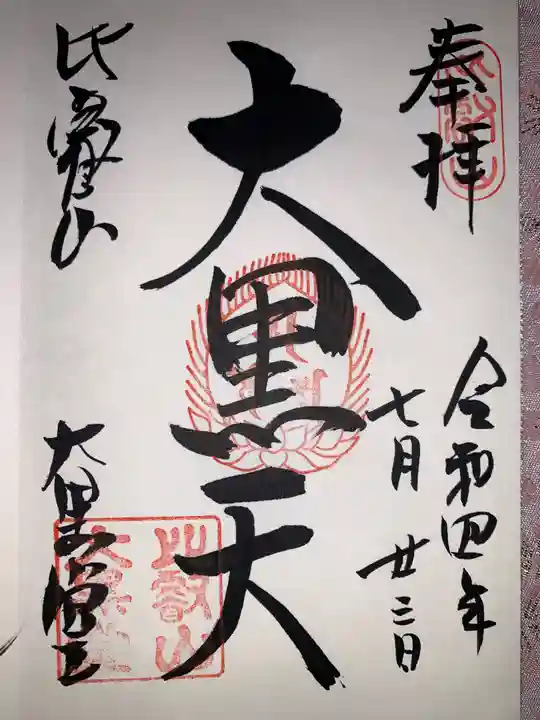 奉拝
令和四年
七月廿三日
大黒天
比叡山
大黒堂
比叡山